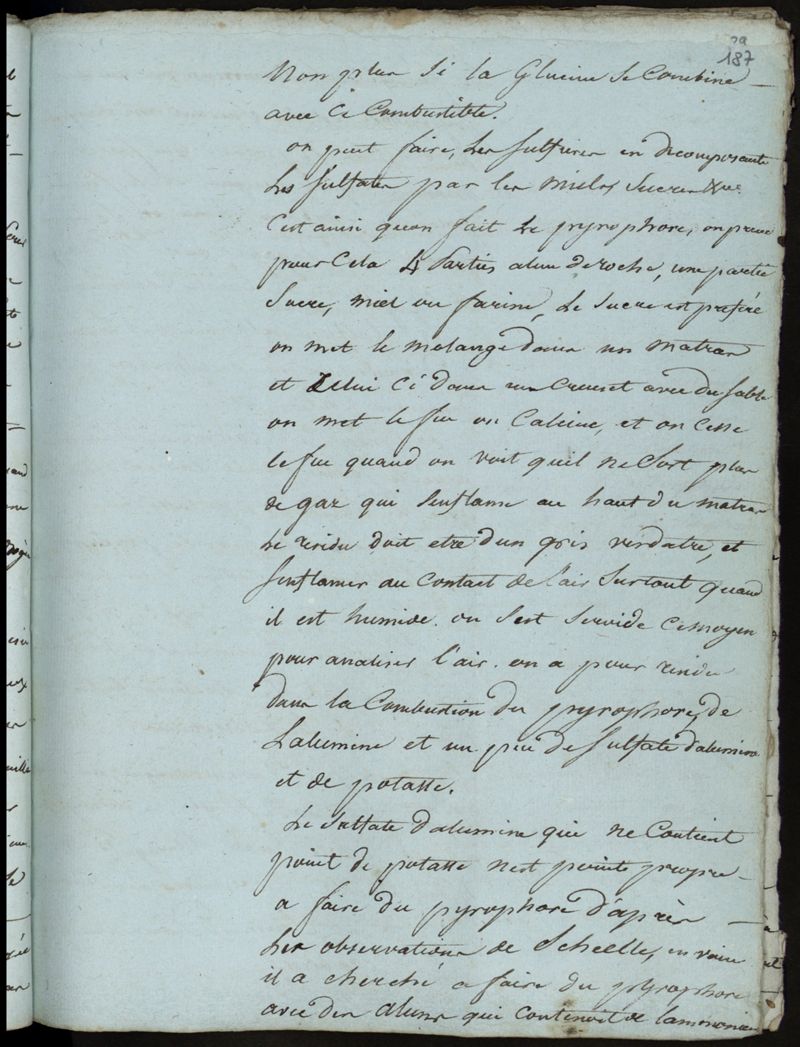 187
non plus si la Glucine se Combine
avec ce Combustible.
on peut faire, les sulfures en decomposant
les sulfates par les miels, sucres &c
C'est ainsi quon fait le pyrophore, on prend
pour Cela 4 parties alun de roche, une partie
sucre, miel ou farine, le sucre est preferé
on met le melange dans un matras
et celui ci dans un Creuset avec du sable
on met le feu on Calcine, et on cesse
le feu quand on voit quil ne sort plus
de gaz qui senflame au haut du matras
le residu doit etre dun gris verdatre, et
senflamer au contact de l'air surtout quand
il est humide. on sest servi de ce moyen
pour analiser l'air. on a pour residu
dans la Combustion du pyrophore, de
Lalumine et un peu de sulfate dalumine
et de potasse.
Le sulfate dalumine qui ne Contient
point de potasse nest point propre
a faire du pyrophore d'après
les observations de Scheelle, en vain
il a cherché a faire du pyrophore
avec des aluns qui contenoit de lammoniac